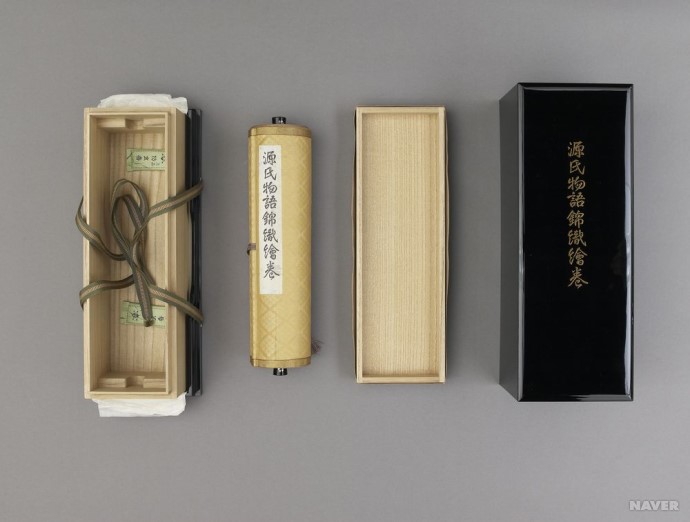 源氏物語錦織繪巻
源氏物語錦織繪巻
NAVER